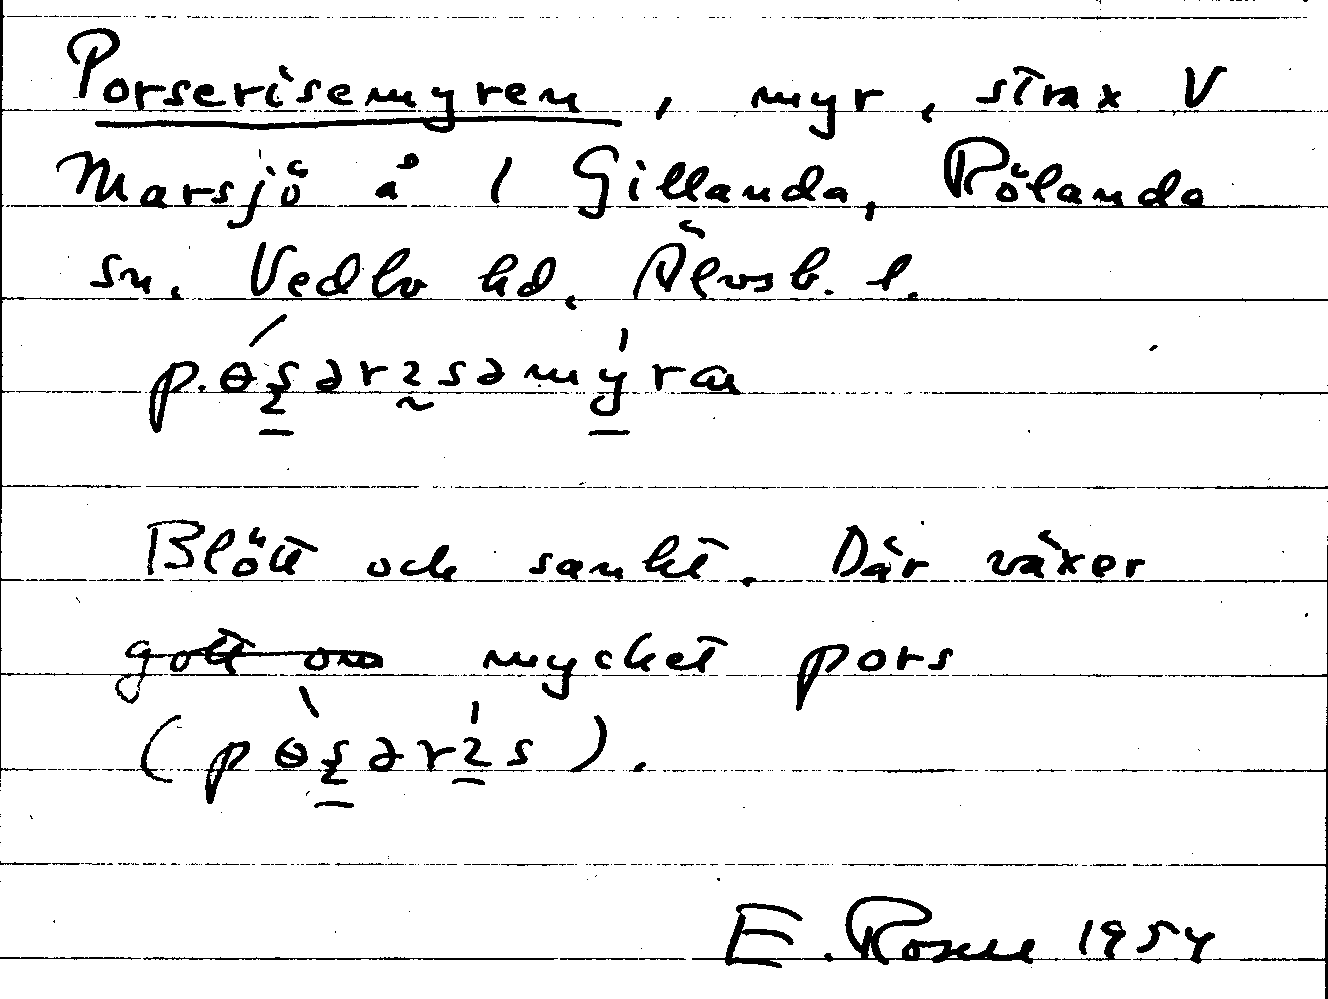 Porserisemyren, myr, strax V
Marsjö å 1 Gillanda, Rölanda
sn. Vedbo hd. Älvsb. l.
Blött och sankt. Där växer
gott om mycket pors
E. Rosell 1954